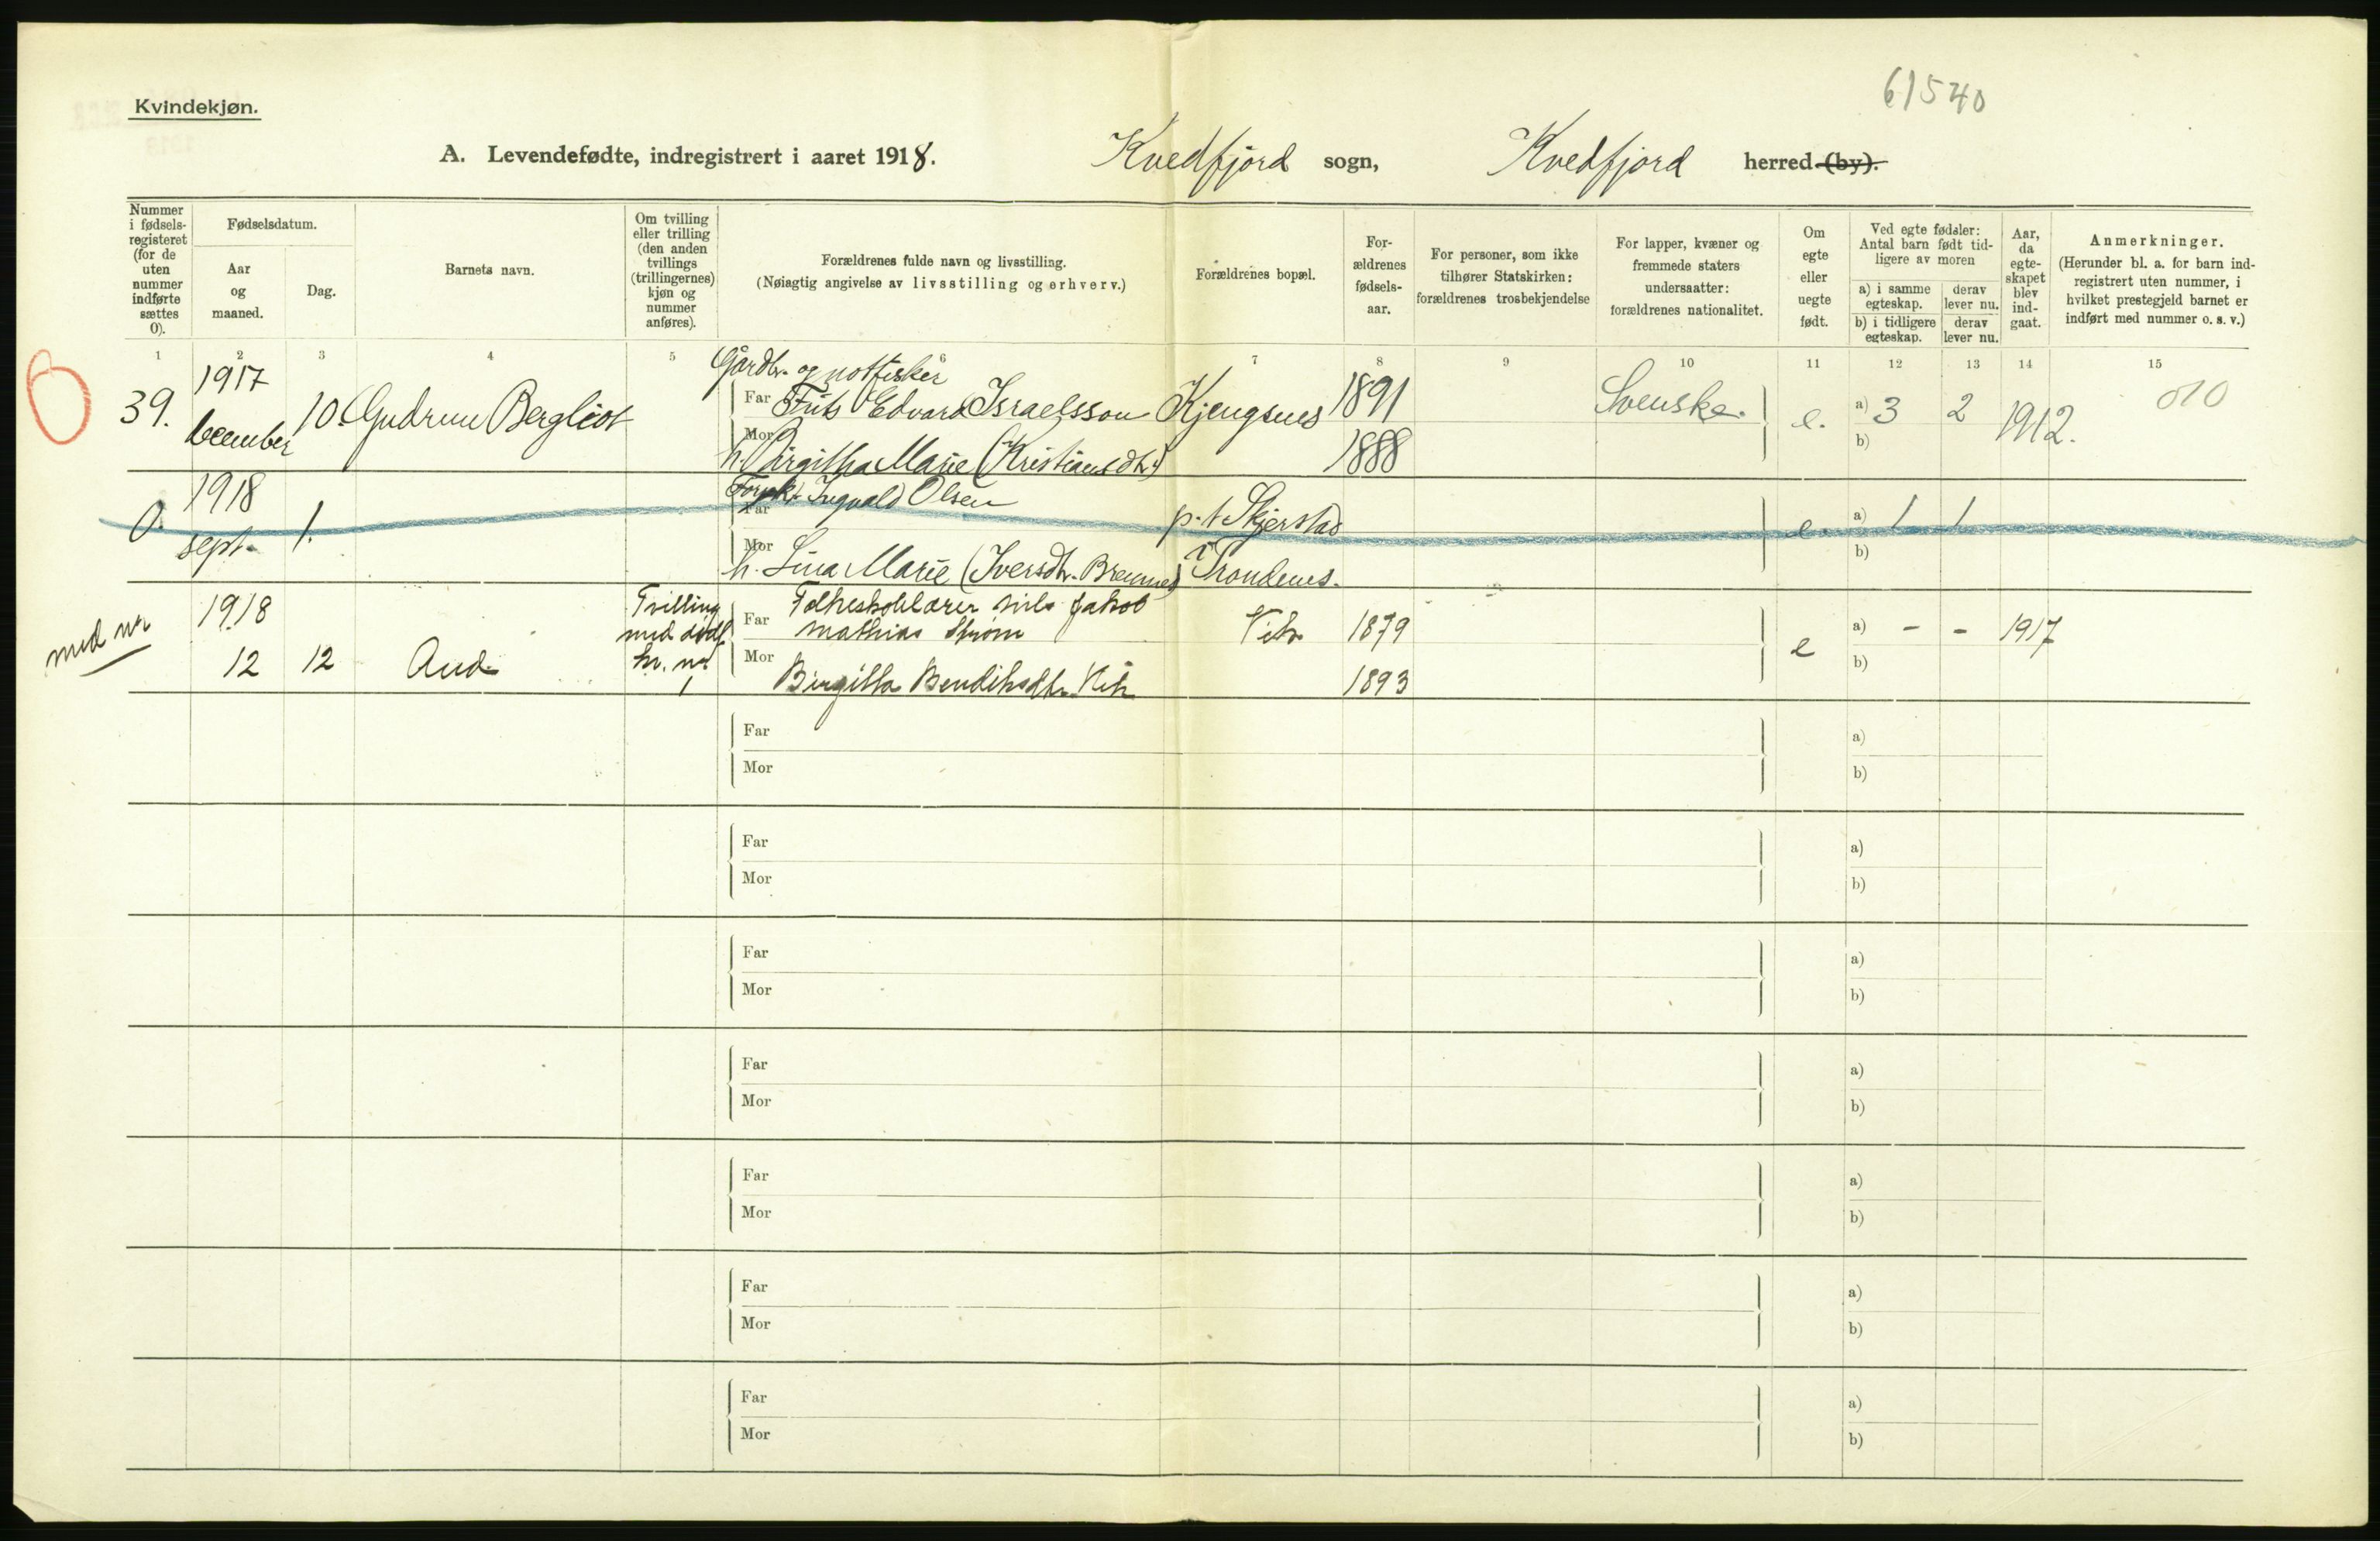 61540
Kvindekjøn.
A. Levendefødte, indregistrert i aaret 1918. Kvedfjord sogn, Kvedfjord herred (by).
Nummer i fødsels-registeret (for de uten nummer indførte sættes 0).
Fødselsdatum.
Aar og maaned.
Dag.
Barnets navn.
Om tvilling eller trilling (den anden tvillings (trillingernes) kjøn og nummer anføres).
Forældrenes fulde navn og livsstilling.
(Nøiagtig angivelse av livsstilling og erhverv.)
Forældrenes bopæl.
For-ældrenes fødsels-aar.
For personer, som ikke tilhører Statskirken: forældrenes trosbekjendelse
For lapper, kvæner og fremmede staters undersaatter: forældrenes nationalitet.
Om egte eller uegte født.
Ved egte fødsler: Antal barn født tid-ligere av moren
a) i samme egteskap.
derav lever nu.
b) i tidligere egteskap.
derav lever nu.
Aar, da egte-skapet blev ind-gaat.
Anmerkninger.
(Herunder bl. a. for barn ind-registrert uten nummer, i hvilket prestegjeld barnet er indført med nummer o. s. v.)
1 2 3 4 5 6 7 8 9 10 11 12 13 14 15
Gårdbr. og notfisker
39. 1917 december 10. Gudrun Bergliot
Far Frits Edvard Israelsson Kjengsnes 1891 Svenske. e. a) 3 2 1912. 010
Mor h. Birgitha Marie (Kristiansdtr.) 1888 b)
0. 1918 sept. 1.
Far Ingvald Olsen p.t. Skjerstad e. a) 1 1
Mor h. Lina Marie (Iversdtr. Bremnes) i Trondenes. b)
med nr
1918 12 12 Aud
Tvilling med dødf. nr. 1
Far Folkeskolelærer Nils Jakob Mathias Strøm Vik 1879 e a) - - 1917
Mor Birgitta Bendiksdtr. Vik 1893 b)
Far a)
Mor b)
Far a)
Mor b)
Far a)
Mor b)
Far a)
Mor b)
Far a)
Mor b)
Far a)
Mor b)
Far a)
Mor b)